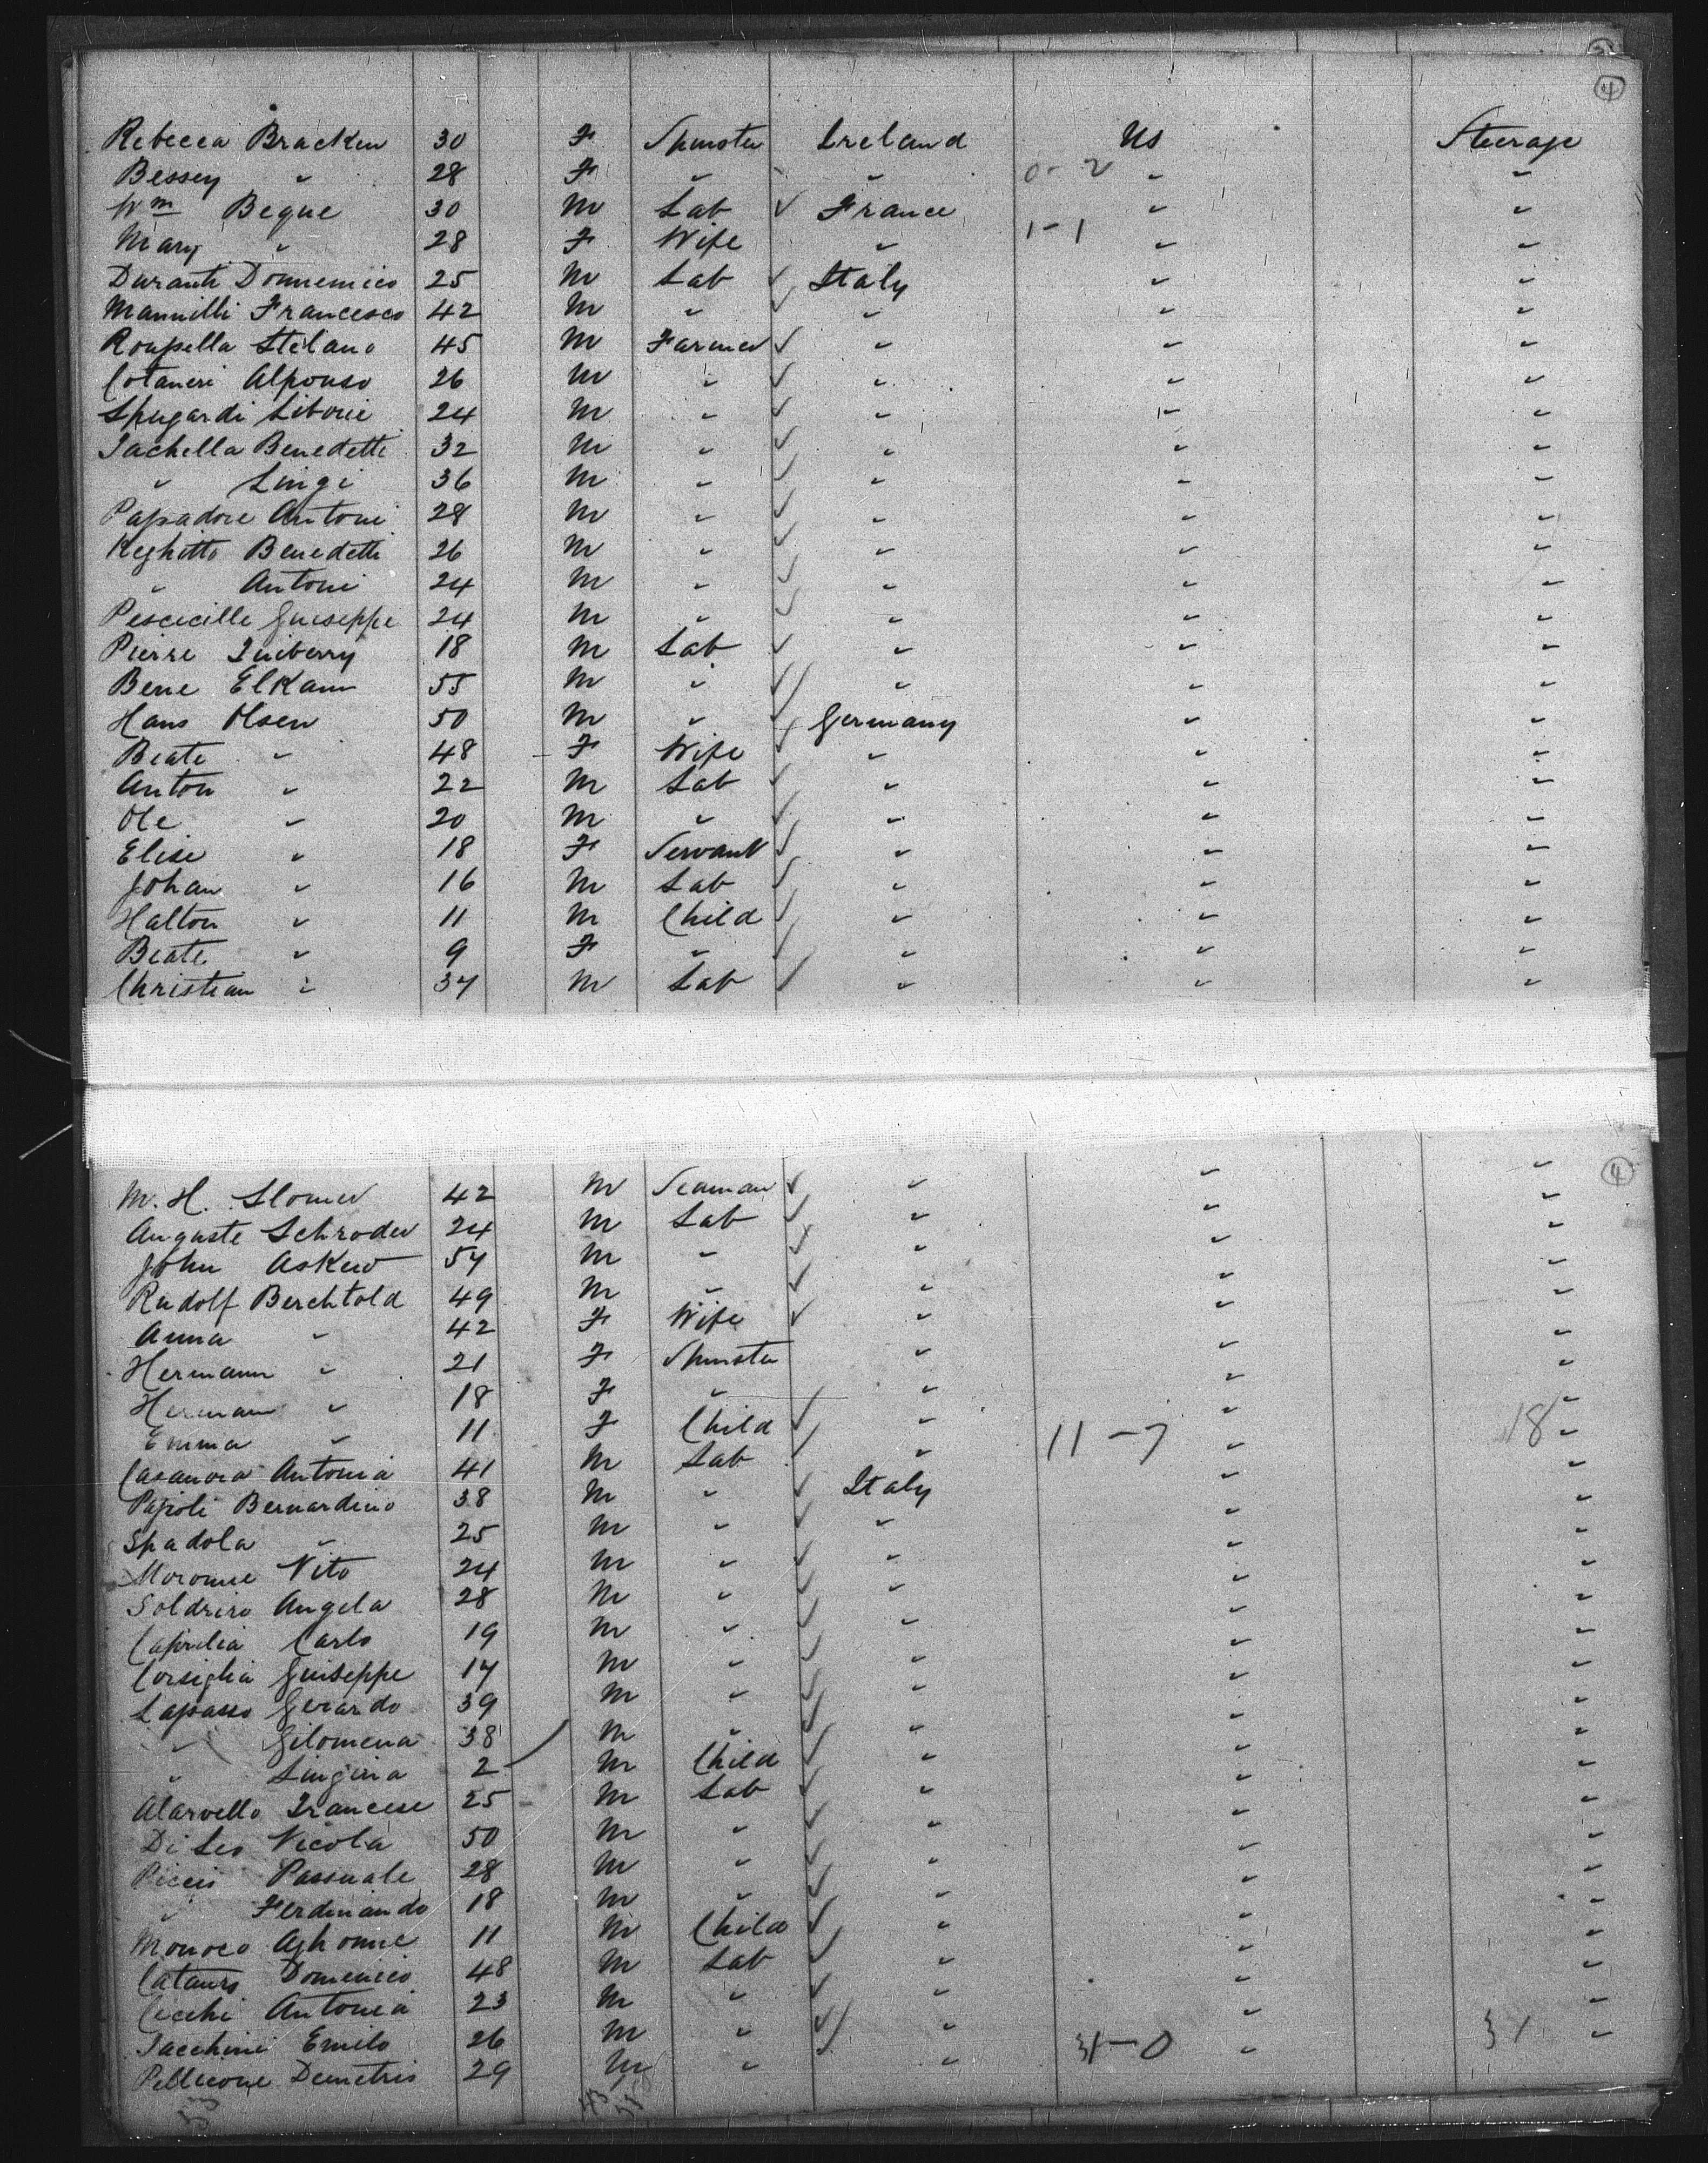 4
Rebecca Bracken 30 F Spinster Ireland US Steerage
Bessey " 28 F " " 0-2 " "
Wm Begue 30 M Lab ✓ France " "
Mary " 28 F Wife " 1-1 " "
Duranti Donnemico 25 M Lab ✓ Italy " "
Mannilli Francesco 42 M " ✓ " " "
Roupella Stelano 45 M Farmer ✓ " " "
Cotaneri Alponso 26 M " ✓ " " "
Spugardi Liborie 24 M " ✓ " " "
Iachella Benedetti 32 M " ✓ " " "
" Lingi 36 M " ✓ " " "
Papadore Antoni 28 M " ✓ " " "
Reghitto Benedetti 26 M " ✓ " " "
" Antoni 24 M " ✓ " " "
Pescicille Guiseppe 24 M " ✓ " " "
Pierre 18 M Lab ✓ " " "
Bene Elkann 55 M " ✓ " " "
Hans Olsen 50 M " ✓ Germany " "
Beate " 48 F Wife ✓ " " "
Anton " 22 M Lab ✓ " " "
Ole " 20 M " ✓ " " "
Elise " 18 F Servant ✓ " " "
Johan " 16 M Lab ✓ " " "
Halton " 11 M Child ✓ " " "
Beate " 9 F " ✓ " " "
Christian " 34 M Lab ✓ " " "
4
M. H. Slomer 42 M Seaman ✓ " " "
Auguste Schroder 24 M Lab ✓ " " "
John Askew 54 M " ✓ " " "
Rudolf Berchtold 49 M " ✓ " " "
Anna " 42 F Wife ✓ " " "
Hermann " 21 F Spinster " " "
Herman " 18 F " " " "
Emma " 11 F Child ✓ " 11-7 " 18 "
Casanova Antonia 41 M Lab ✓ " " "
Papoli Bernardino 38 M " ✓ Italy " "
Spadola " 25 M " ✓ " " "
Moronie Vito 24 M " ✓ " " "
Soldriro Angela 28 M " ✓ " " "
Caprilia Carlo 19 M " ✓ " " "
Corsiglia Guiseppe 17 M " ✓ " " "
Lapasso Gerardo 39 M " ✓ " " "
" Gilomena 38 M " ✓ " " "
" Lingina 2 M Child ✓ " " "
Alarvello Francese 25 M Lab ✓ " " "
Di Leo Nicola 50 M " ✓ " " "
Piccii Pasquale 28 M " ✓ " " "
" Ferdinando 18 M " ✓ " " "
Monoco 11 M Child ✓ " " "
Catauro Domenico 48 M Lab ✓ " " "
Cecchi Antonia 23 M " ✓ " " "
Iacchini Emilo 26 M " ✓ " " "
Pellicone Demetris 29 M " ✓ " 31-0 " 31 "